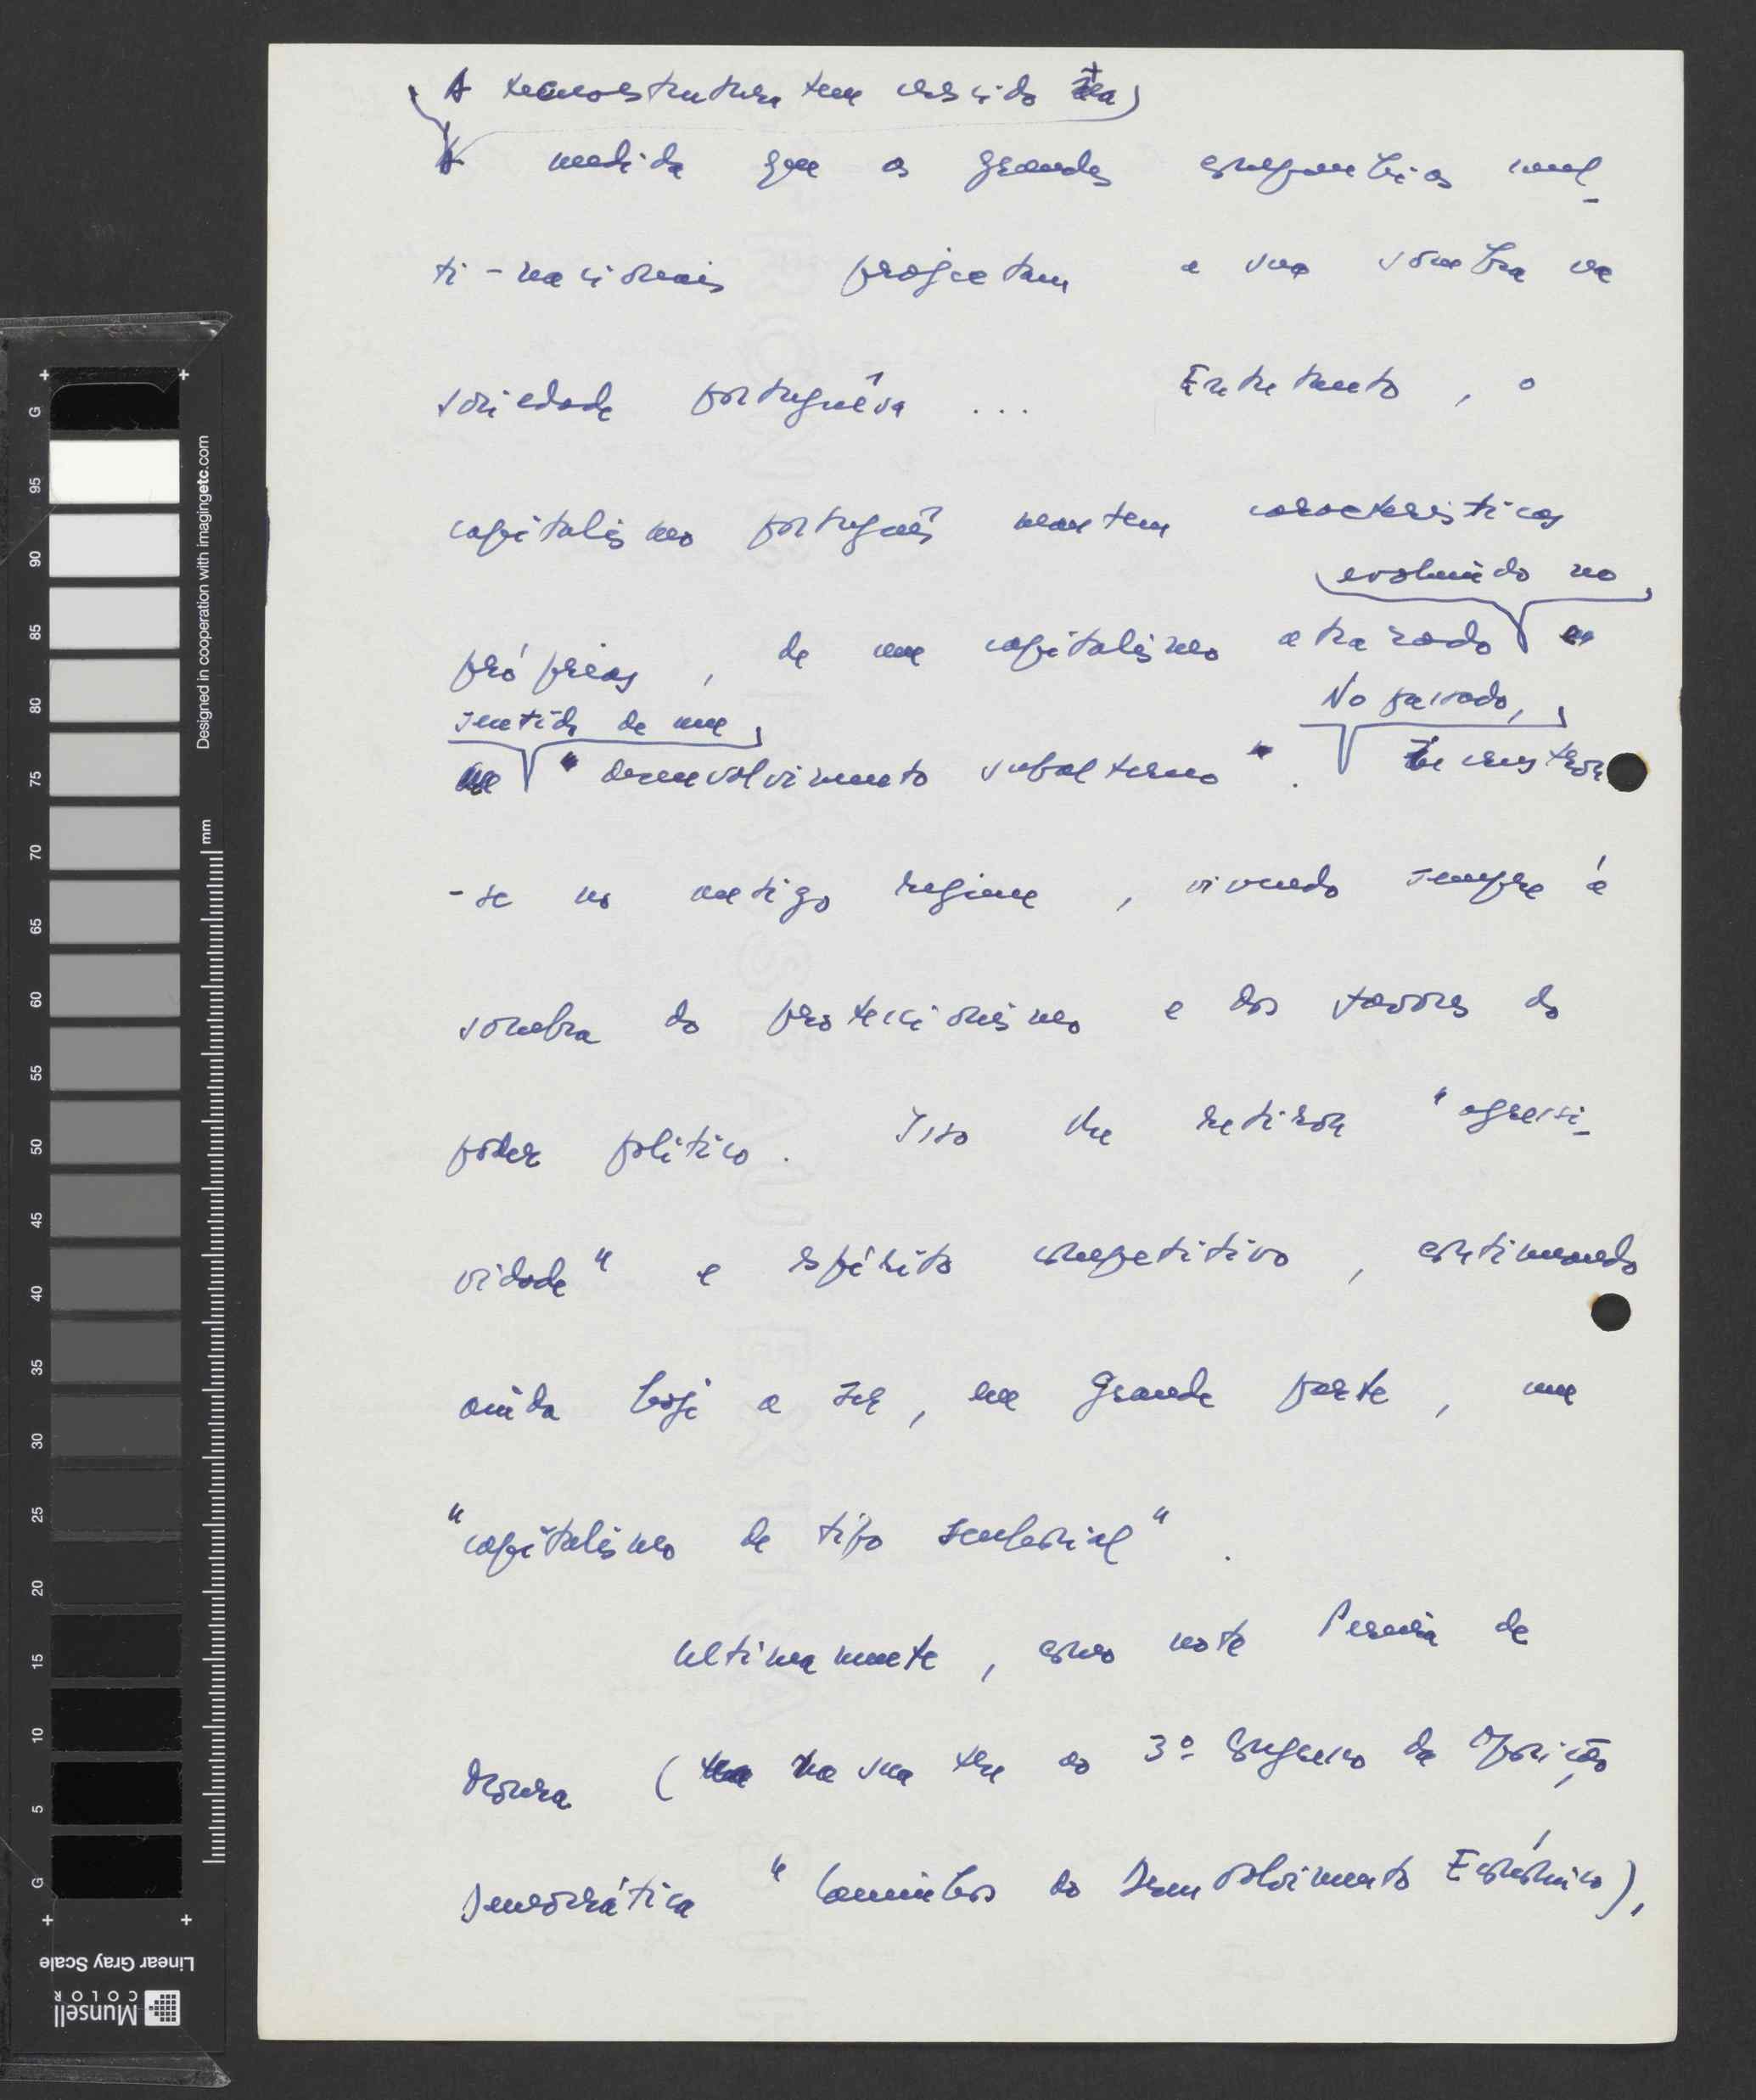 A tecnoestrutura tem crescido na
medida que as grandes companhias mul-
ti-nacionais projectam a sua sombra na
sociedade portuguêsa ... Entretanto, o
capitalismo português mantem caracteristicas
evoluindo no
próprias, de um capitalismo atrazado
sentido de um
No passado,
"desenvolvimento subalterno". encostou
-se no antigo regime, vivendo sempre à
sombra do proteccionismo e dos favores do
poder politico. Isso lhe retirou "agressi-
vidade" e espírito competitivo, continuando
ainda hoje a ser, em grande parte, um
"capitalismo de tipo senhorial".
Ultimamente, como nota Pereira de
Moura (na sua tese ao 3º Congresso da Oposição
Democrática "Caminhos do Desenvolvimento Económico),
Designed in cooperation with imagingetc.com
mm
G
95
90
85
80
75
70
65
60
55
50
45
40
35
30
25
20
15
10
5
G
Linear Gray Scale
Munsell
COLOR